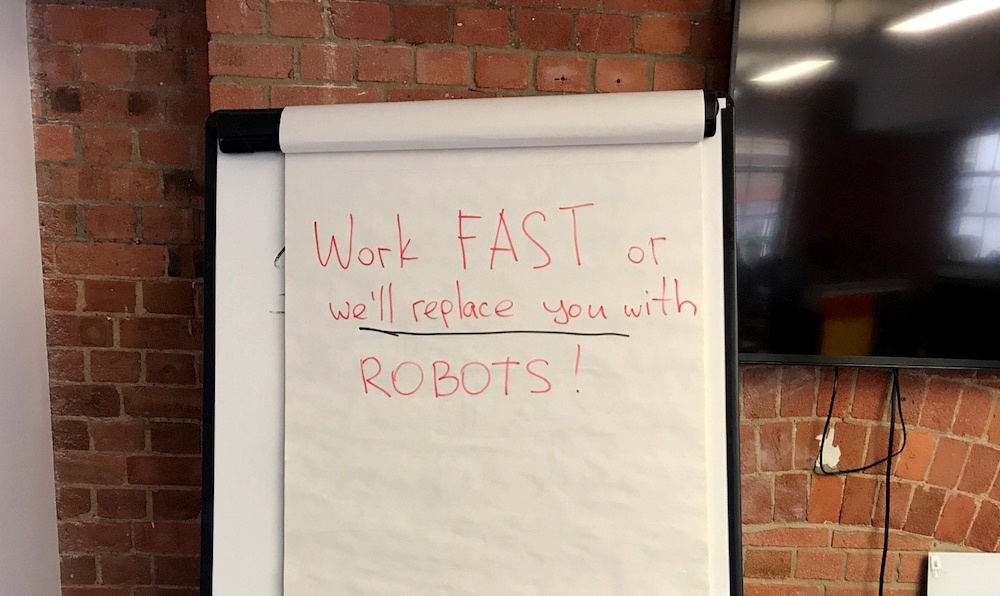 Work FAST or
we'll replace you with
ROBOTS!